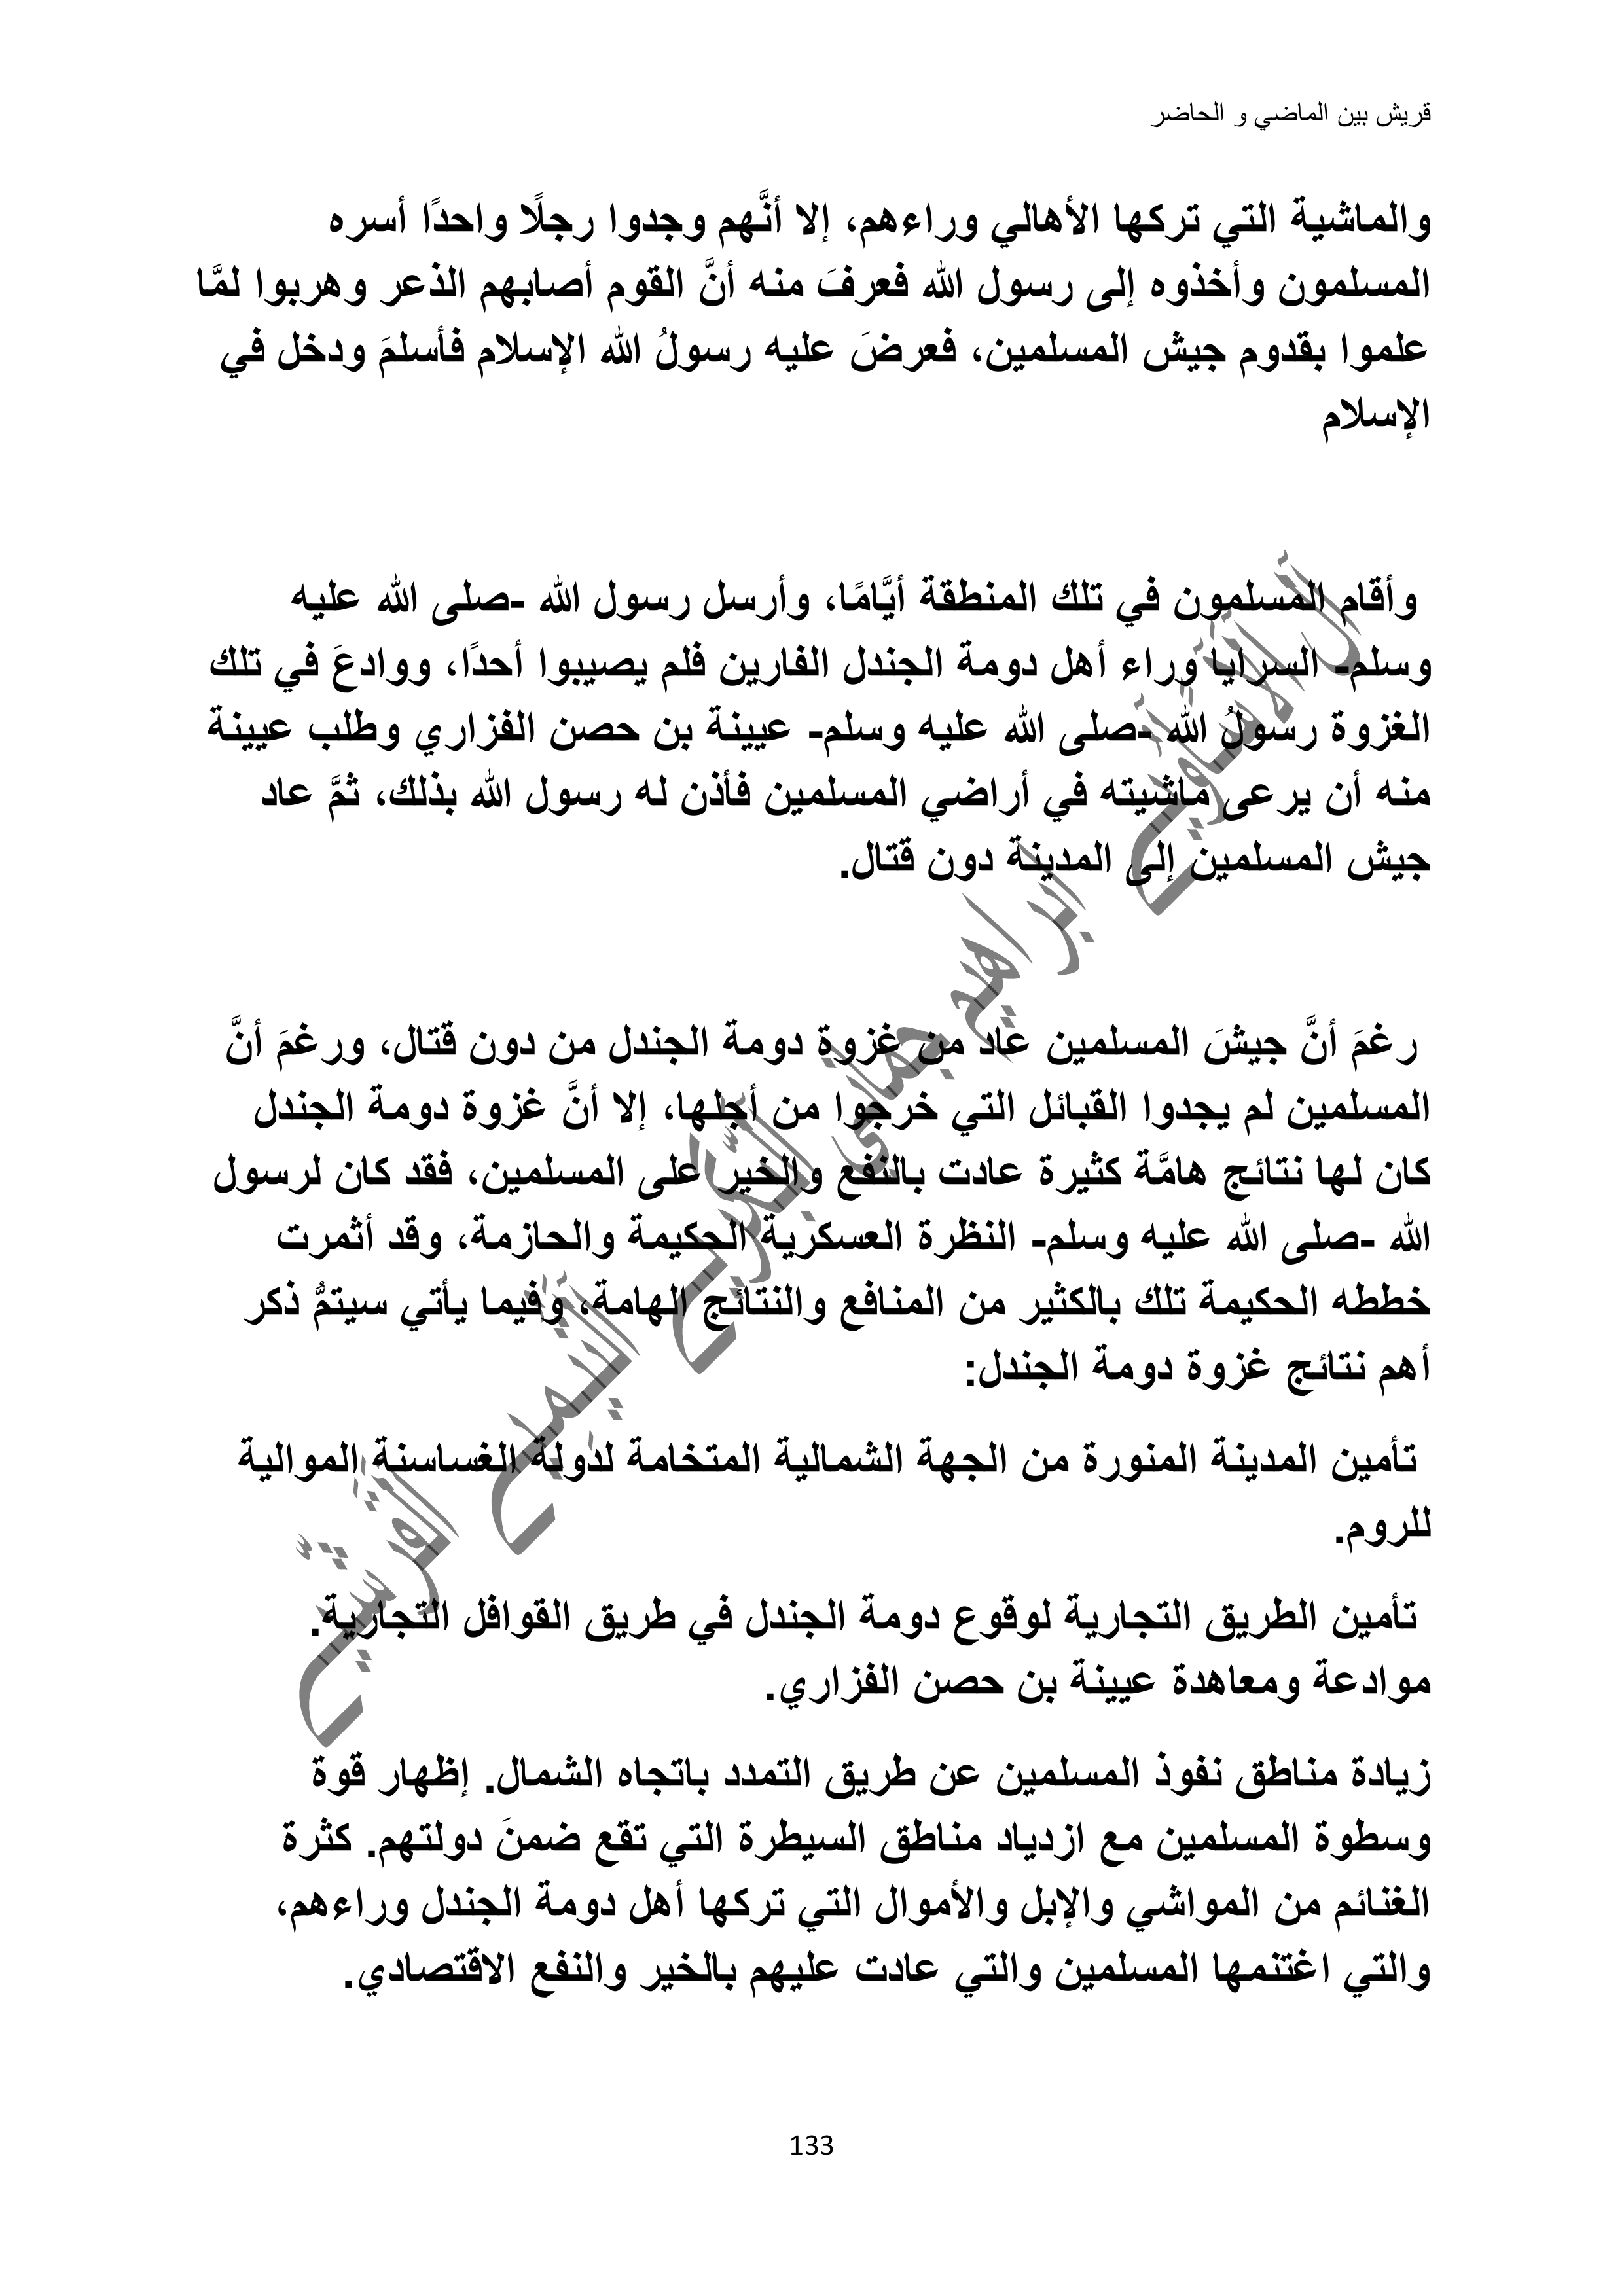 قريش بين الماضي و الحاضر
والماشية التي تركها الأهالي وراءهم، إلا أنَّهم وجدوا رجلًا واحدًا أسره
المسلمون وأخذوه إلى رسول الله فعرفَ منه أنَّ القوم أصابهم الذعر وهربوا لمَّا
علموا بقدوم جيش المسلمين، فعرضَ عليه رسولُ الله الإسلام فأسلمَ ودخل في
الإسلام
وأقام المسلمون في تلك المنطقة أيَّامًا، وأرسل رسول الله -صلى الله عليه
وسلم- السرايا وراء أهل دومة الجندل الفارين فلم يصيبوا أحدًا، ووادعَ في تلك
الغزوة رسولُ الله -صلى الله عليه وسلم- عيينة بن حصن الفزاري وطلب عيينة
منه أن يرعى ماشيته في أراضي المسلمين فأذن له رسول الله بذلك، ثمَّ عاد
جيش المسلمين إلى المدينة دون قتال.
رغمَ أنَّ جيشَ المسلمين عاد من غزوة دومة الجندل من دون قتال، ورغمَ أنَّ
المسلمين لم يجدوا القبائل التي خرجوا من أجلها، إلا أنَّ غزوة دومة الجندل
كان لها نتائج هامَّة كثيرة عادت بالنفع والخير على المسلمين، فقد كان لرسول
الله -صلى الله عليه وسلم- النظرة العسكرية الحكيمة والحازمة، وقد أثمرت
خططه الحكيمة تلك بالكثير من المنافع والنتائج الهامة، وفيما يأتي سيتمُّ ذكر
أهم نتائج غزوة دومة الجندل:
تأمين المدينة المنورة من الجهة الشمالية المتخامة لدولة الغساسنة الموالية
للروم.
تأمين الطريق التجارية لوقوع دومة الجندل في طريق القوافل التجارية.
موادعة ومعاهدة عيينة بن حصن الفزاري.
زيادة مناطق نفوذ المسلمين عن طريق التمدد باتجاه الشمال. إظهار قوة
وسطوة المسلمين مع ازدياد مناطق السيطرة التي تقع ضمنَ دولتهم. كثرة
الغنائم من المواشي والإبل والأموال التي تركها أهل دومة الجندل وراءهم،
والتي اغتنمها المسلمين والتي عادت عليهم بالخير والنفع الاقتصادي.
133